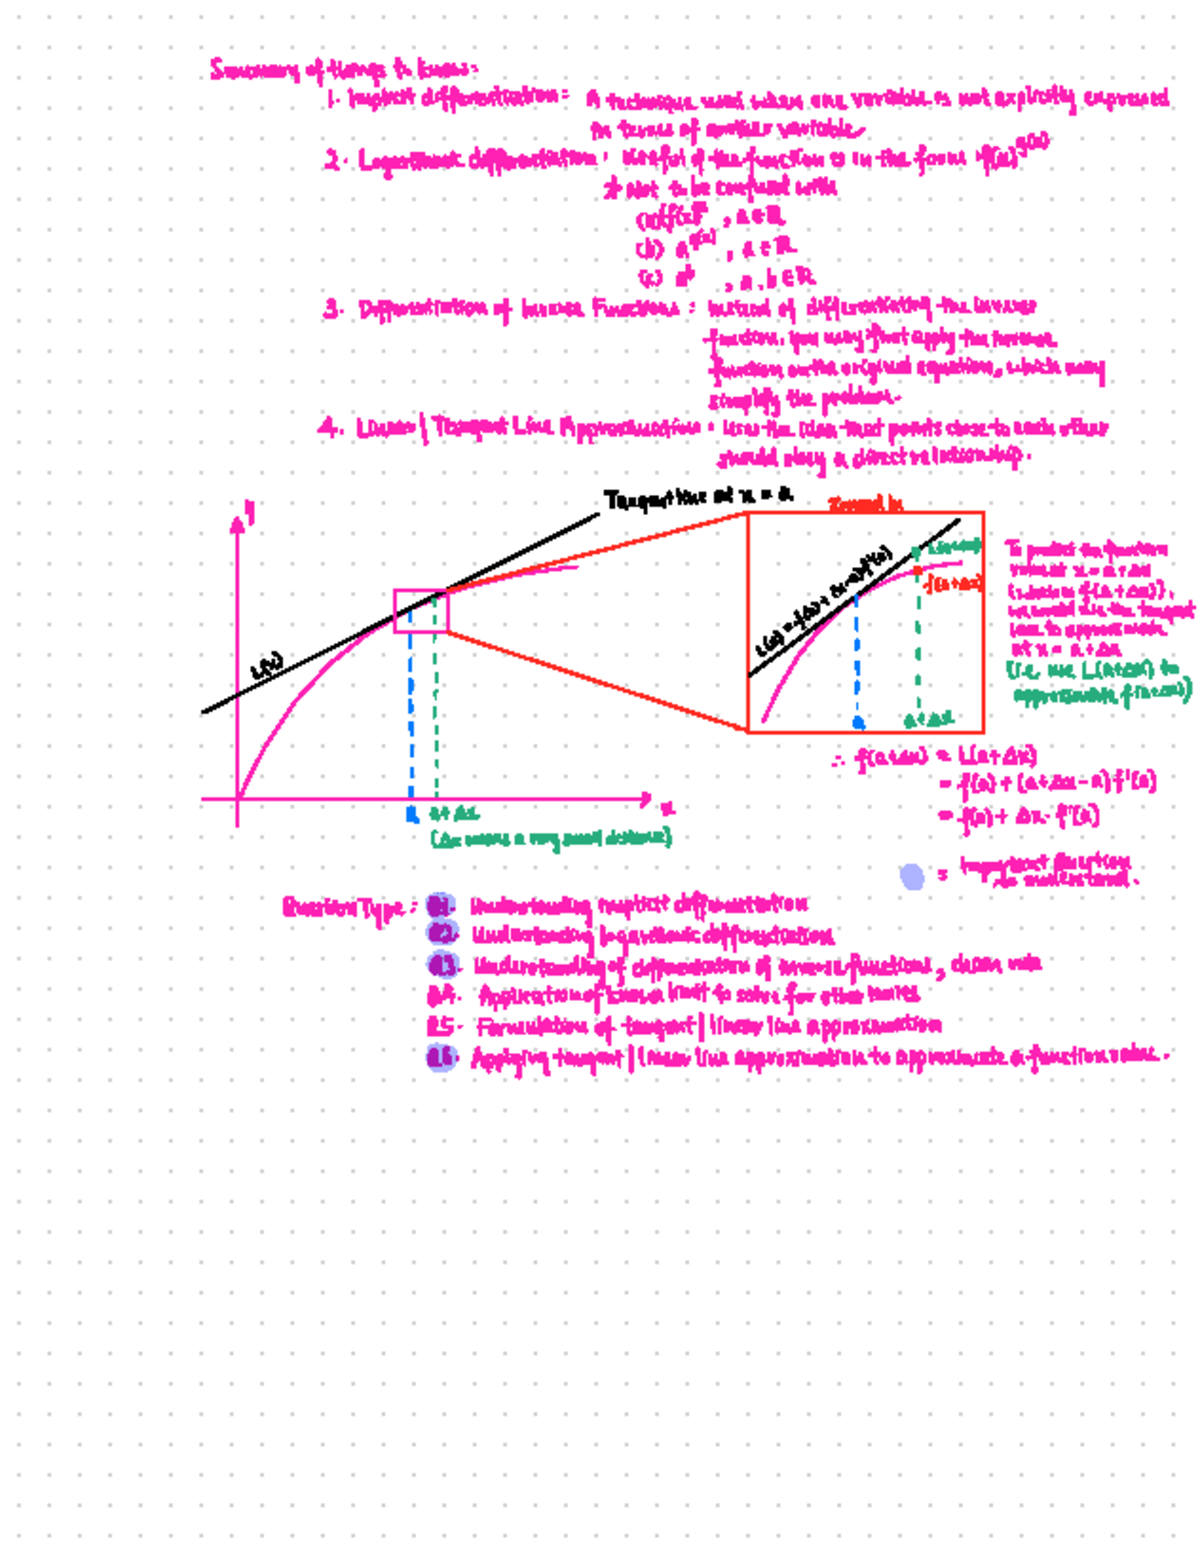 Summary of things to know:
1. Implicit differentiation: A technique used when one variable is not explicitly expressed
in terms of another variable.
2. Logarithmic differentiation: Useful if the function is in the form f(x)^g(x)
* Not to be confused with
(a) f(x)^a, a ∈ ℝ
(b) a^g(x), a ∈ ℝ
(c) a^b, a, b ∈ ℝ
3. Differentiation of Inverse Functions: Instead of differentiating the inverse
function, you may first apply the inverse
function on the original equation, which may
simplify the problem.
4. Linear | Tangent Line Approximation: Uses the idea that points close to each other
should obey a direct relationship.
y
Tangent line at x = a
Zoomed in
L(x)
L(x) = f(a) + (x-a)f'(a)
L(a+Δx)
f(a+Δx)
a
a+Δx
To predict the function
value at x = a+Δx
(which is f(a+Δx)),
we would use the tangent
line to approximate
at x = a+Δx
(i.e. use L(a+Δx) to
approximate f(a+Δx))
x
a
a+Δx
(Δx means a very small distance)
∴ f(a+Δx) ≈ L(a+Δx)
= f(a) + (a+Δx-a)f'(a)
= f(a) + Δx·f'(a)
= Important question
to understand.
Question Type: Q1. Understanding implicit differentiation
Q2. Understanding logarithmic differentiation
Q3. Understanding of differentiation of inverse functions, chain rule
Q4. Application of known limit to solve for other limits
Q5. Formulation of tangent | linear line approximation
Q6. Applying tangent | linear line approximation to approximate a function value.